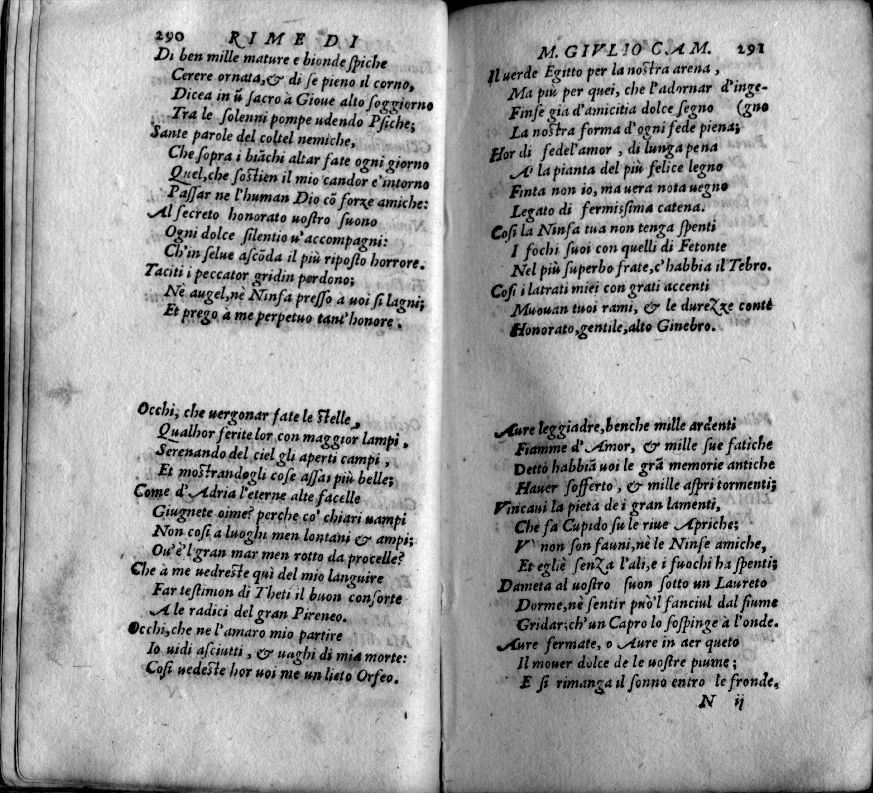 290 RIME DI
Di ben mille mature e bionde spiche
Cerere ornata, & di se pieno il corno,
Dicea in ũ sacro à Gioue alto soggiorno
Tra le solenni pompe udendo Psiche;
Sante parole del coltel nemiche,
Che sopra i biãchi altar fate ogni giorno
Quel, che sostien il mio candor e'intorno
Passar ne l'human Dio cõ forze amiche:
Al secreto honorato uostro suono
Ogni dolce silentio u'accompagni:
Ch'in selue ascõda il più riposto horrore.
Taciti i peccator gridin perdono;
Nè augel, nè Ninfa presso a uoi si lagni;
Et prego à me perpetuo tant'honore.
Occhi, che uergonar fate le stelle,
Qualhor ferite lor con maggior lampi,
Serenando del ciel gli aperti campi,
Et mostrandogli cose assai più belle;
Come d'Adria l'eterne alte facelle
Giugnete oime? perche co' chiari uampi
Non cosi a luoghi men lontani & ampi;
Ou'è'l gran mar men rotto da procelle?
Che à me uedreste quì del mio languire
Far testimon di Theti il buon consorte
A le radici del gran Pireneo.
Occhi, che ne l'amaro mio partire
Io uidi asciutti, & uaghi di mia morte:
Cosi uedeste hor uoi me un lieto Orfeo.
M. GIVLIO CAM. 291
Il uerde Egitto per la nostra arena,
Ma più per quei, che l'adornar d'inge-
Finse gia d'amicitia dolce segno (gno
La nostra forma d'ogni fede piena;
Hor di fedel'amor, di lunga pena
A' la pianta del più felice legno
Finta non io, ma uera nota uegno
Legato di fermissima catena.
Cosi la Ninfa tua non tenga spenti
I fochi suoi con quelli di Fetonte
Nel più superbo frate, c'habbia il Tebro.
Cosi i latrati miei con grati accenti
Muouan tuoi rami, & le durezze conte
Honorato, gentile, alto Ginebro.
Aure leggiadre, benche mille ardenti
Fiamme d'Amor, & mille sue fatiche
Detto habbiã uoi le grã memorie antiche
Hauer sofferto, & mille aspri tormenti;
Vincaui la pieta de i gran lamenti,
Che fa Cupido su le riue Apriche;
V' non son fauni, nè le Ninfe amiche,
Et egliè senza l'ali, e i fuochi ha spenti;
Dameta al uostro suon sotto un Laureto
Dorme, nè sentir può'l fanciul dal fiume
Gridar; ch'un Capro lo sospinge à l'onde.
Aure fermate, o Aure in aer queto
Il mouer dolce de le uostre piume;
E si rimanga il sonno entro le fronde.
N ij